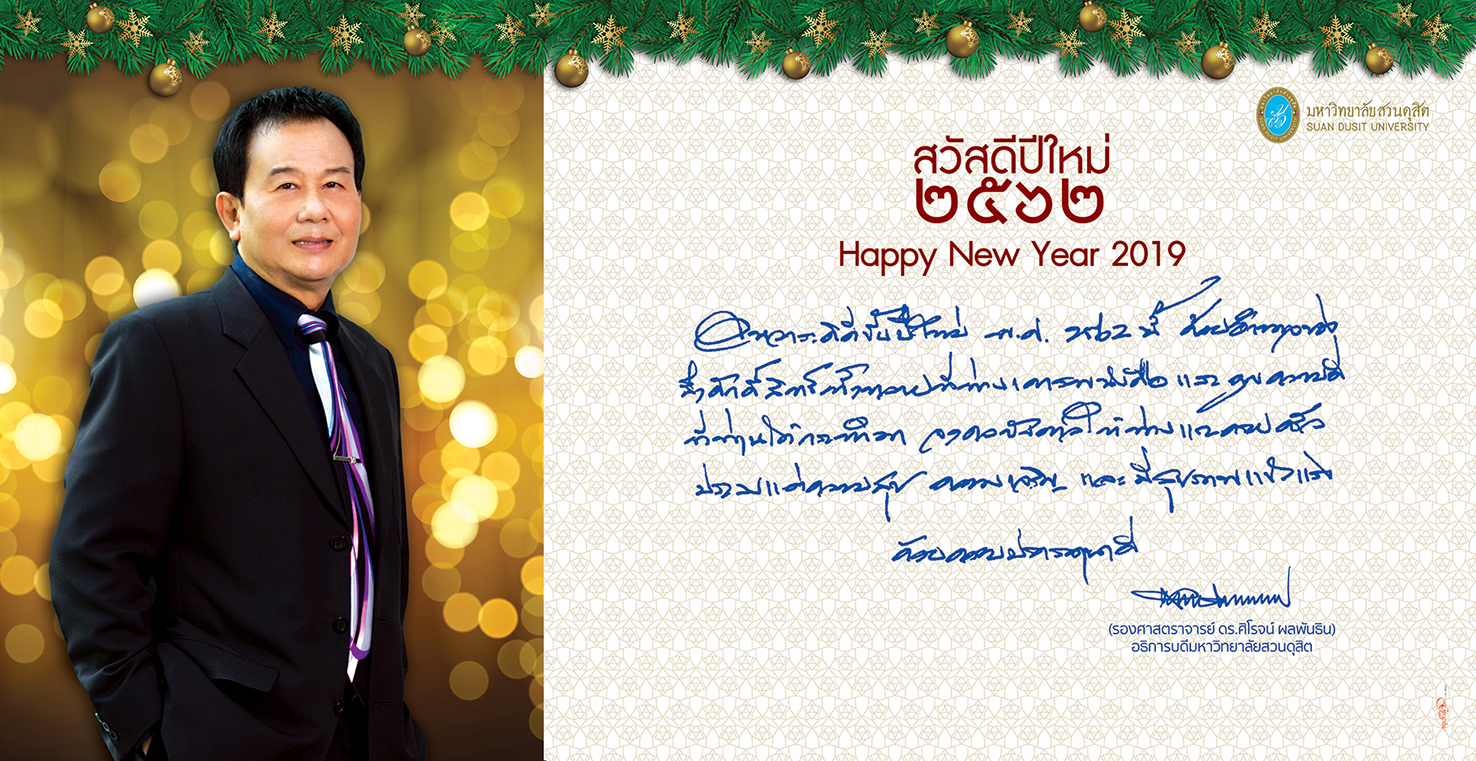 มหาวิทยาลัยสวนดุสิต
SUAN DUSIT UNIVERSITY
สวัสดีปีใหม่
๒๕๖๒
Happy New Year 2019
ในวาระดิถีขึ้นปีใหม่ พ.ศ. ๒๕๖๒ นี้ ด้วยอำนาจแห่ง
สิ่งศักดิ์สิทธิ์ทั้งหลายที่ท่านเคารพนับถือ และคุณความดี
ที่ท่านได้กระทำมา จงดลบันดาลให้ท่านและครอบครัว
ประสบแต่ความสุข ความเจริญ และมีสุขภาพแข็งแรง
ด้วยความปรารถนาดี
(รองศาสตราจารย์ ดร.ศิโรจน์ ผลพันธิน)
อธิการบดีมหาวิทยาลัยสวนดุสิต